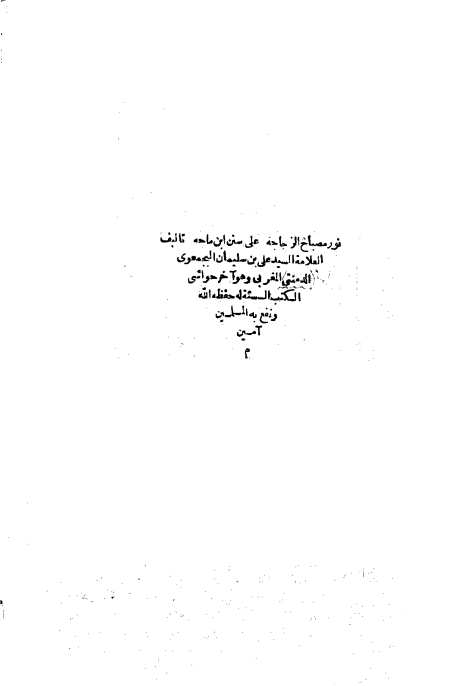 نور مصباح الزجاجة على سنن ابن ماجه تأليف
العلامة السيد على بن سليمان البجمعوى
الدمنتى المغربى وهو آخر حواشى
الكتب الستة له حفظه الله
ونفع به المسلمين
آمين
م